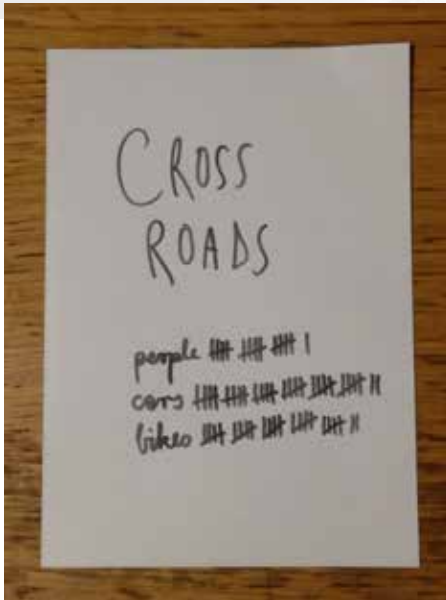 CROSS
ROADS
people 卌 卌 卌 |
cars 卌 卌 卌 卌 卌 卌 ||
bikes 卌 卌 卌 卌 卌 ||